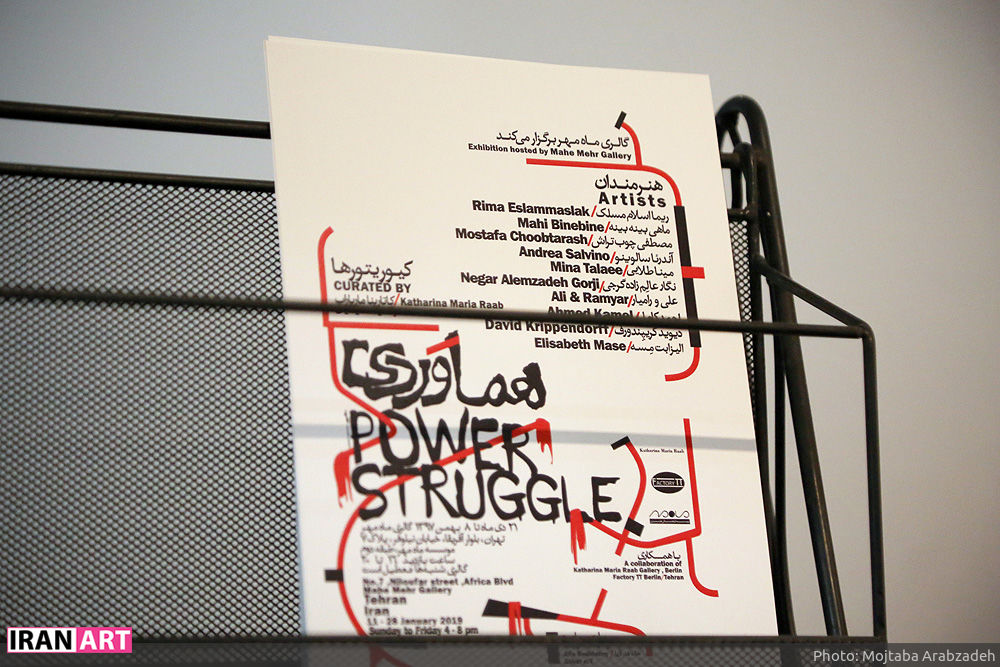 گالری ماه مهر برگزار می‌کند
Exhibition hosted by Mahe Mehr Gallery
هنرمندان
Artists
Rima Eslammaslak/ریما اسلام مسلک
Mahi Binebine/ماهی بینه بینه
Mostafa Choobtarash/مصطفی چوب تراش
Andrea Salvino/آندرئا سالوینو
Mina Talaee/مینا طلایی
Negar Alemzadeh Gorji/نگار عالم زاده گرجی
Ali & Ramyar/علی و رامیار
Ahmed Kamel/احمد کامل
David Krippendorff/دیوید کریپندورف
Elisabeth Mase/الیزابت مسه
کیوریتورها
CURATED BY
Katharina Maria Raab/کاتارینا ماریا راب
هماوردی
POWER
STRUGGLE
۲۱ دی ماه تا ۸ بهمن ۱۳۹۷ گالری ماه مهر
تهران، بلوار آفریقا، خیابان نیلوفر، پلاک ۷
موسسه ماه مهر، طبقه دوم
ساعت بازدید ۱۶ تا ۲۰
گالری شنبه‌ها تعطیل است
No.7 ,Niloufar street ,Africa Blvd
Mahe Mehr Gallery
Tehran
Iran
11 - 28 January 2019
Sunday to Friday 4 - 8 pm
Katharina Maria Raab
FACTORY TT
با همکاری
A collaboration of
Katharina Maria Raab Gallery , Berlin
Factory TT Berlin/Tehran
IRAN ART
Photo: Mojtaba Arabzadeh